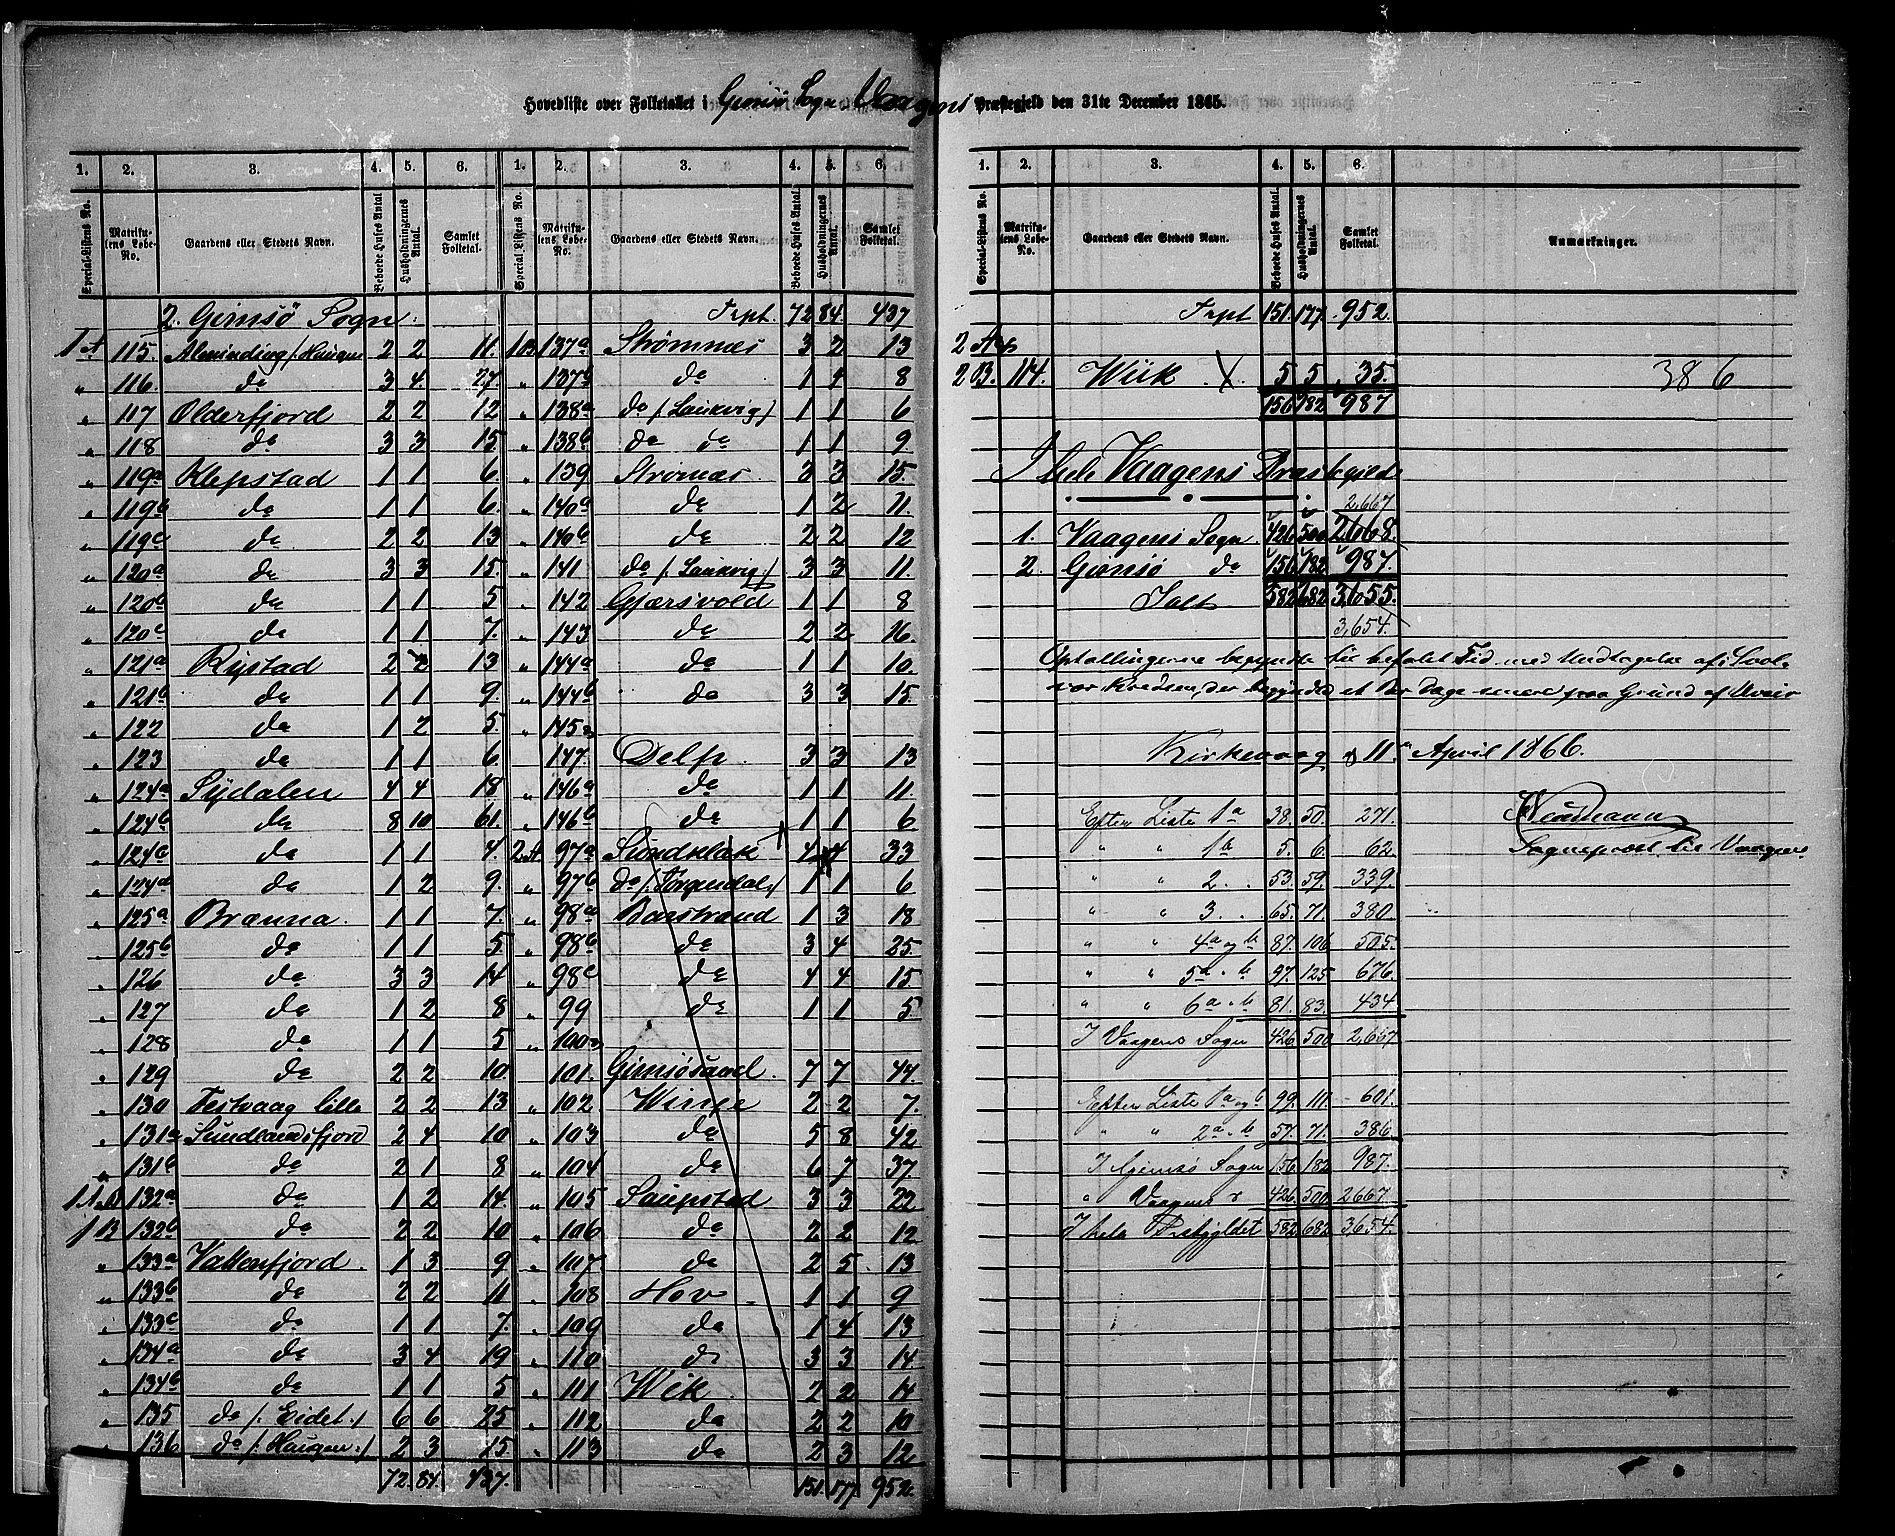 Hovedliste over Folketallet i Gimsö Sogn Vaagens Præstegjeld den 31te December 1865.
1. 2. 3. 4. 5. 6. 1. 2. 3. 4. 5. 6.
Special-Listens No. Matrikulens Løbe-No. Gaardens eller Stedets Navn. Beboede Huses Antal Husholdningernes Antal. Samlet Folketal. Special Listens No. Matrikulens Løbe-No. Gaardens eller Stedets Navn. Beboede Huses Antal. Husholdningernes Antal. Samlet Folketal.
2. Gimsö Sogn. Trpt. 72 84. 437
1 A 115. Alminding /: Haugen 2 2 11. 1 B. 137a Strømnæs 3 2 13
" 116. do 3 4. 27. " 137b do 1 1 8
" 117 Olderfjord 2 2 12 " 138a do /: Laukvig :/ 1 1 6
" 118 do 3 3 15. " 138b do do 1 1 9.
" 119a Klepstad 1 1 6. " 139 Strømnæs 3 3 15.
" 119b do 1 1 6. " 140a do 1 2 11.
" 119c do 2 2 13 " 140b do 2 2 12
" 120a do 3 3 15. " 141 do /: Laukvig :/ 3 3 11.
" 120b do 1 1 5 " 142 Gjærsvold 1 1 8
" 120c do 1 1 7. " 143 do 2 2 16.
" 121a Rystad 2 2 13 " 144a do 1 1 10.
" 121b do 1 1 9. " 144b do 3 3 15.
" 122 do 1 2 5. " 145
" 123 do 1 1 6. " 147. Delp 3 3 13
" 124a Sydalen 4 4 18 " 146a do 1 1 11.
" 124b do 8 10 61. " 146b do 1 1 6
" 124c do 1 1 4. 2 A 97a Sundklak 4 4 33
" 124d do 1 2 9. " 97b do /: Torgendal :/ 1 1 6
" 125a Brænna. 1 1 7. " 98a Barstrand 1 3 18
" 125b do 1 1 5. " 98b do 3 4 25.
" 126 do 3 3 14 " 98c do 4 4 15
" 127 do 1 2 8 " 99 do 1 1 5
" 128 do 1 1 5 " 100
" 129 do 2 2 10 " 101. Gimsösand. 7 7 44.
" 130 Festvaag lille 2 2 13 " 102 Winje 2 2 7.
" 131a Sundlandsfjord 2 4 10 " 103 do 5 8 42
" 131b do 2 1 8 " 104 do 6 7 37.
132a do 1 2 14. " 105 Saupstad 3 3 22
1 B 132b do 2 2 10 " 106 do 2 2 12
" 133a Vattenfjord. 1 3 9 " 107 do 2 5. 13
" 133b do 2 2 11 " 108 Hov 1 1 9
" 133c do 1 1 7. " 109 do 1 4 13
" 134a do 3 4 19 " 110 do 3 3 14
" 134b do 1 1 5 " 111 Wik 2 2 14
" 135 do /: Eidet :/ 6 6 25 " 112 do 2 2 10
" 136 do /: Haugen :/ 2 3 15. " 113 do 2 3 12
72. 84. 437. 151. 177 952.
1. 2. 3. 4. 5. 6.
Special-Listens No. Matrikulens Løbe-No. Gaardens eller Stedets Navn. Beboede Huses Antal. Husholdningernes Antal. Samlet Folketal. Anmærkninger.
Trpt 151. 177. 952.
2 A
2 B. 114. Wiik X. 5 5 35. 386
156 182 987
I hele Vaagens Præstegjeld
2,667
1. Vaagens Sogn 426 500 2,668.
2. Gimsö do 156 182 987.
Ialt 582 682 3,655.
3,654.
Optællingerne begyndte til befalet Tid med Undtagelse af i Svol-
vær Kredsen, der begyndte et Par Dage senere paa Grund af Uveir
Kirkevaag 11te April 1866.
Efter Liste 1a 38. 50. 271.
" " 1b 5. 6. 62.
Sogneprest til Vaagen
" " 2. 53. 59. 339.
" " 3. 65. 71. 380.
" " 4a og b 87. 106 505.
" " 5a - b 97. 125 676.
" " 6a - b 81. 83. 434
I Vaagens Sogn 426 500 2,667
Efter Liste 1a og b 99. 111. 601.
" " 2a - b 57. 71. 386
I Gimsö Sogn 156 182 987.
" Vaagens 426 500 2667.
I hele Præstgjeldet 582 682 3,654.